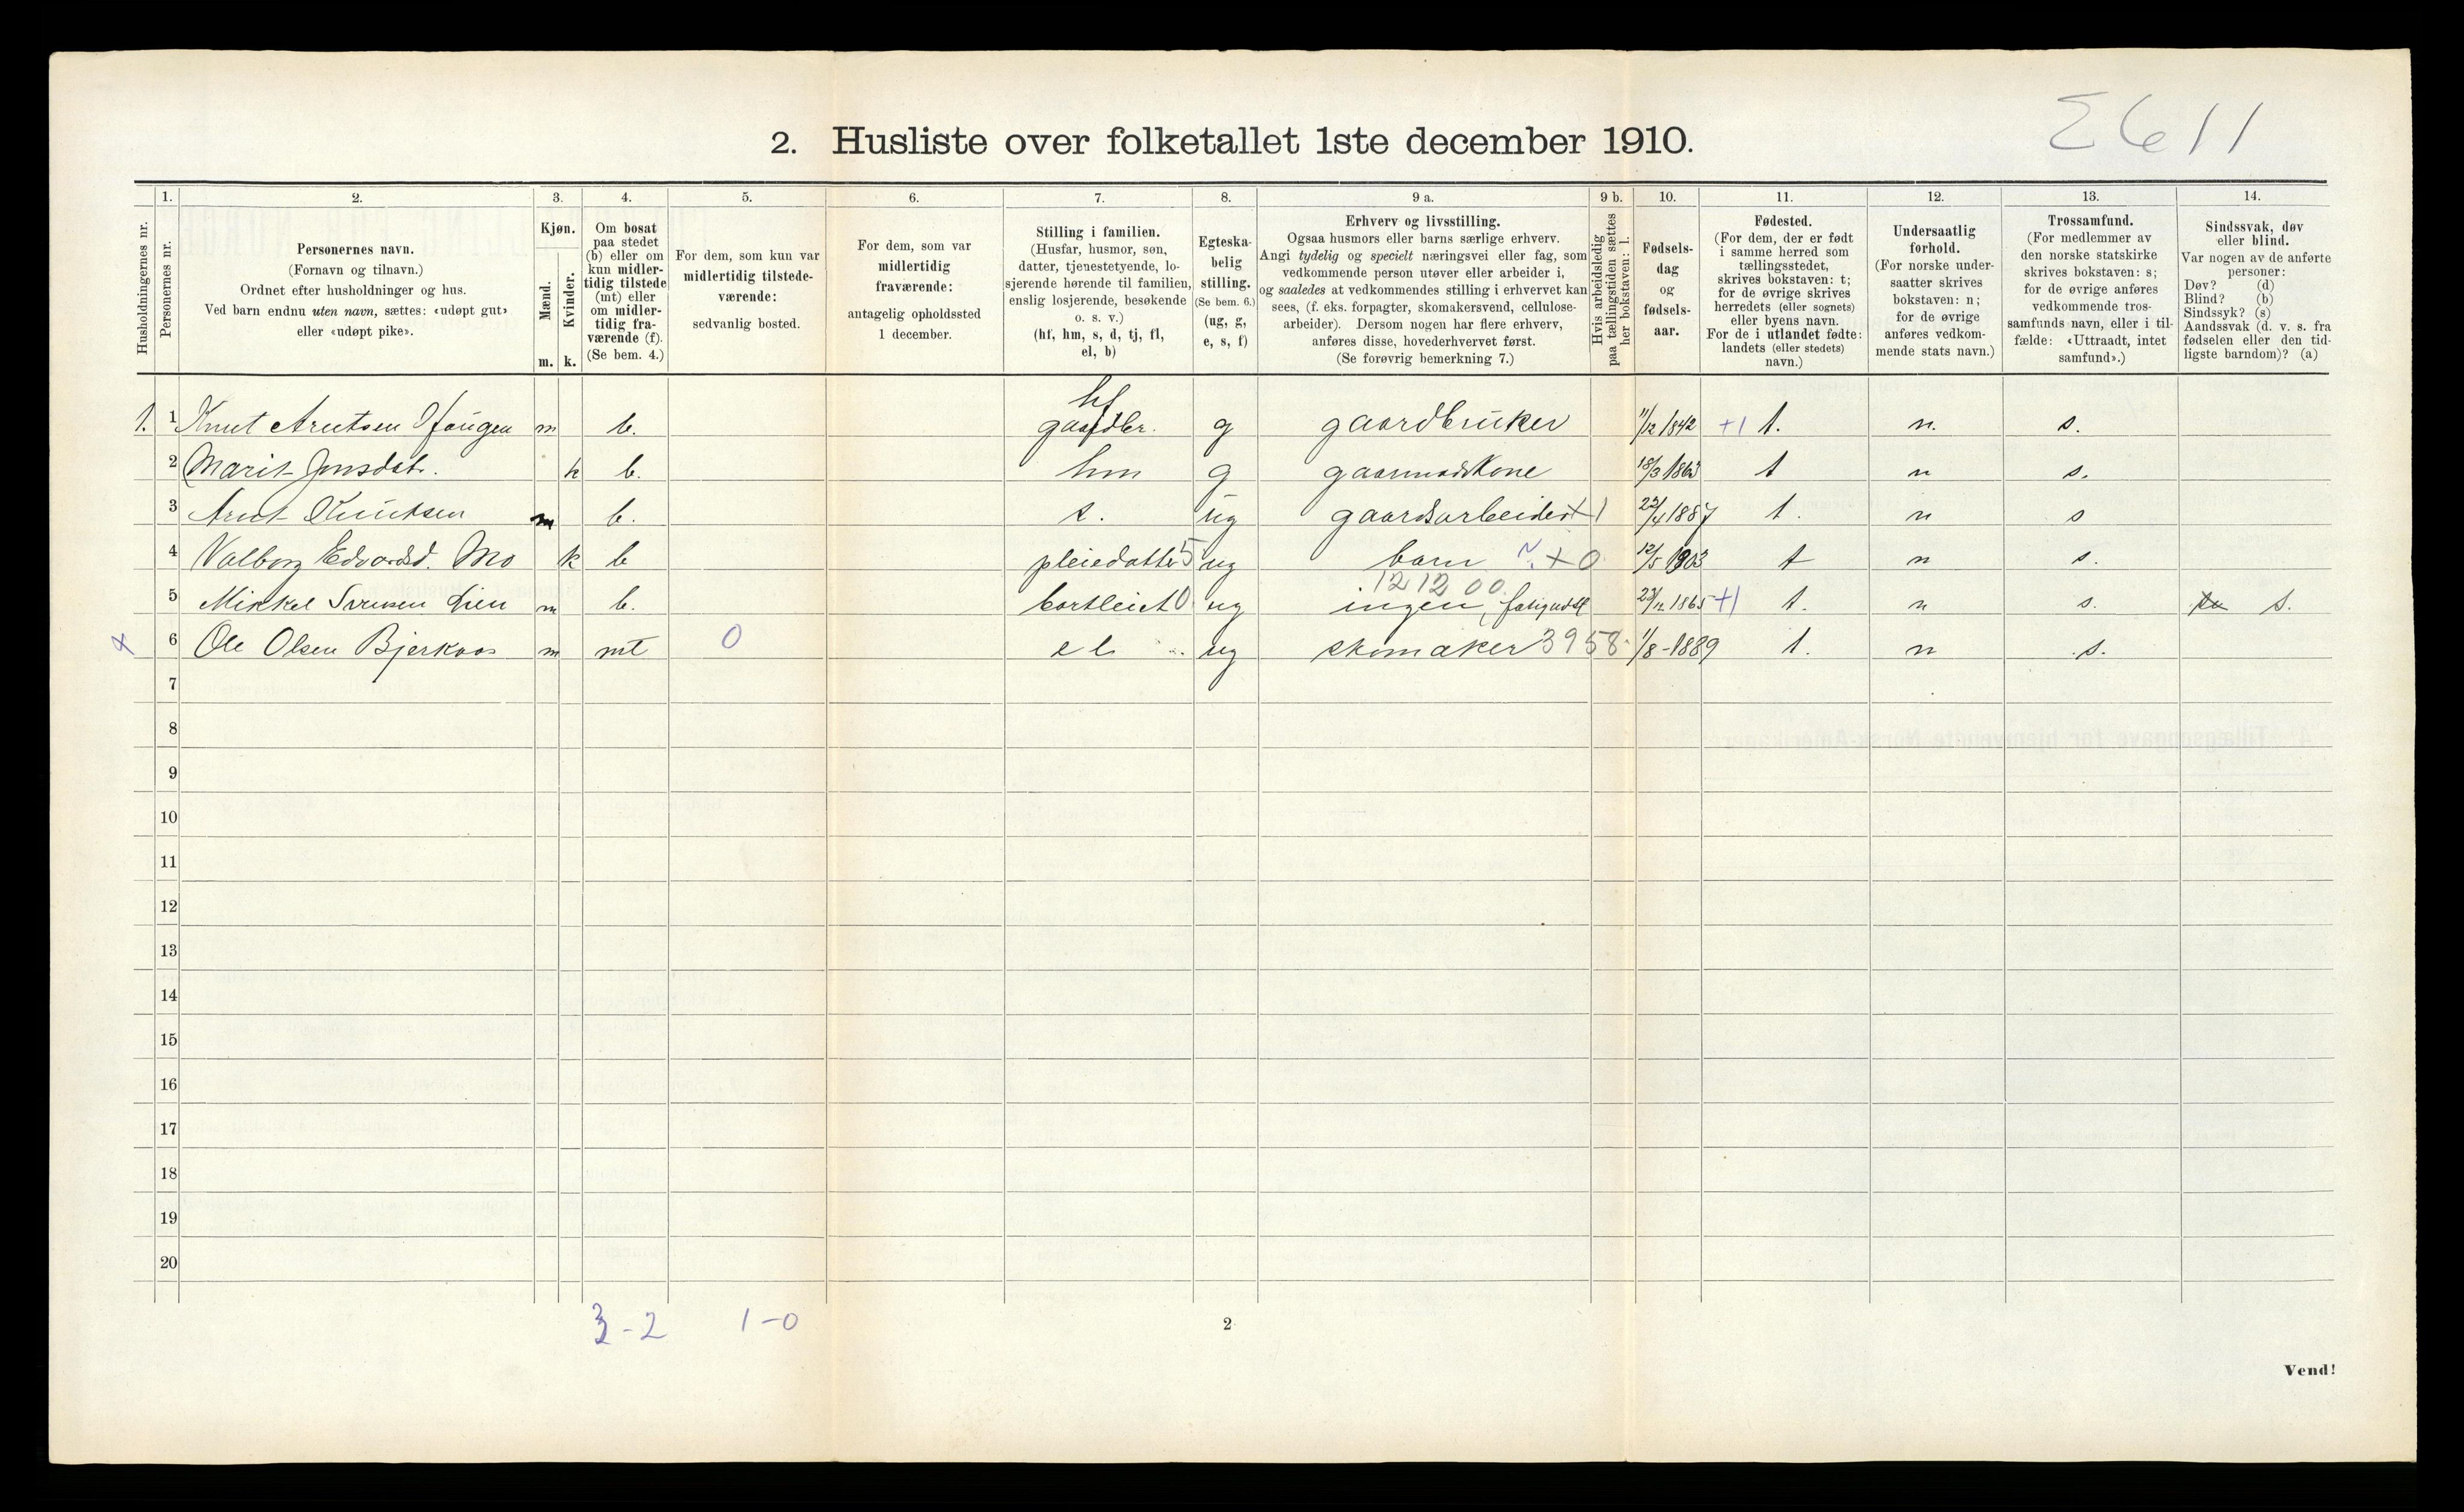 2611
2. Husliste over folketallet 1ste december 1910.
1. 2. 3. 4. 5. 6. 7. 8. 9 a. 9 b. 10. 11. 12. 13. 14.
Husholdningernes nr.
Personernes nr.
Personernes navn.
(Fornavn og tilnavn.)
Ordnet efter husholdninger og hus.
Ved barn endnu uten navn, sættes: «udøpt gut»
eller «udøpt pike».
Kjøn.
Mænd.
Kvinder.
m. k.
Om bosat
paa stedet
(b) eller om
kun midler-
tidig tilstede
(mt) eller
om midler-
tidig fra-
værende (f).
(Se bem. 4.)
For dem, som kun var
midlertidig tilstede-
værende:
sedvanlig bosted.
For dem, som var
midlertidig
fraværende:
antagelig opholdssted
1 december.
Stilling i familien.
(Husfar, husmor, søn,
datter, tjenestetyende, lo-
sjerende hørende til familien,
enslig losjerende, besøkende
o. s. v.)
(hf, hm, s, d, tj, fl,
el, b)
Egteska-
belig
stilling.
(Se bem. 6.)
(ug, g,
e, s, f)
Erhverv og livsstilling.
Ogsaa husmors eller barns særlige erhverv.
Angi tydelig og specielt næringsvei eller fag, som
vedkommende person utøver eller arbeider i,
og saaledes at vedkommendes stilling i erhvervet kan
sees, (f. eks. forpagter, skomakersvend, cellulose-
arbeider). Dersom nogen har flere erhverv,
anføres disse, hovederhvervet først.
(Se forøvrig bemerkning 7.)
Hvis arbeidsledig
paa tællingstiden sættes
her bokstaven: l.
Fødsels-
dag
og
fødsels-
aar.
Fødested.
(For dem, der er født
i samme herred som
tællingsstedet,
skrives bokstaven: t;
for de øvrige skrives
herredets (eller sognets)
eller byens navn.
For de i utlandet fødte:
landets (eller stedets)
navn.)
Undersaatlig
forhold.
(For norske under-
saatter skrives
bokstaven: n;
for de øvrige
anføres vedkom-
mende stats navn.)
Trossamfund.
(For medlemmer av
den norske statskirke
skrives bokstaven: s;
for de øvrige anføres
vedkommende tros-
samfunds navn, eller i til-
fælde: «Uttraadt, intet
samfund».)
Sindssvak, døv
eller blind.
Var nogen av de anførte
personer:
Døv? (d)
Blind? (b)
Sindssyk? (s)
Aandssvak (d. v. s. fra
fødselen eller den tid-
ligste barndom)? (a)
hf
1. 1 Knut Arntsen m b. gaardbr. g gaardbruker 11/12 1842 +1 t. n. s.
2 Marit Jonsdatr. k b. hm g 18/3 1863 t n s.
3 Arnt Knutsen m b. s. ug gaardsarbeider +1 22/4 1887 t. n s
4 Valborg Edvardsd. Mo k b pleiedatter 5 ug barn + 0 12/5 1903 t n s.
12 12 00
5 Mikkel Lien m b. bortleiet 0 ug ingen, 23/12 1865 +1 t. n s. s.
x 6 Ole Olsen Bjerkaas m mt 0 el ug skomaker 3958. 1/8-1889 t. n s.
7
8
9
10
11
12
13
14
15
16
17
18
19
20
3-2 1-0
2
Vend!